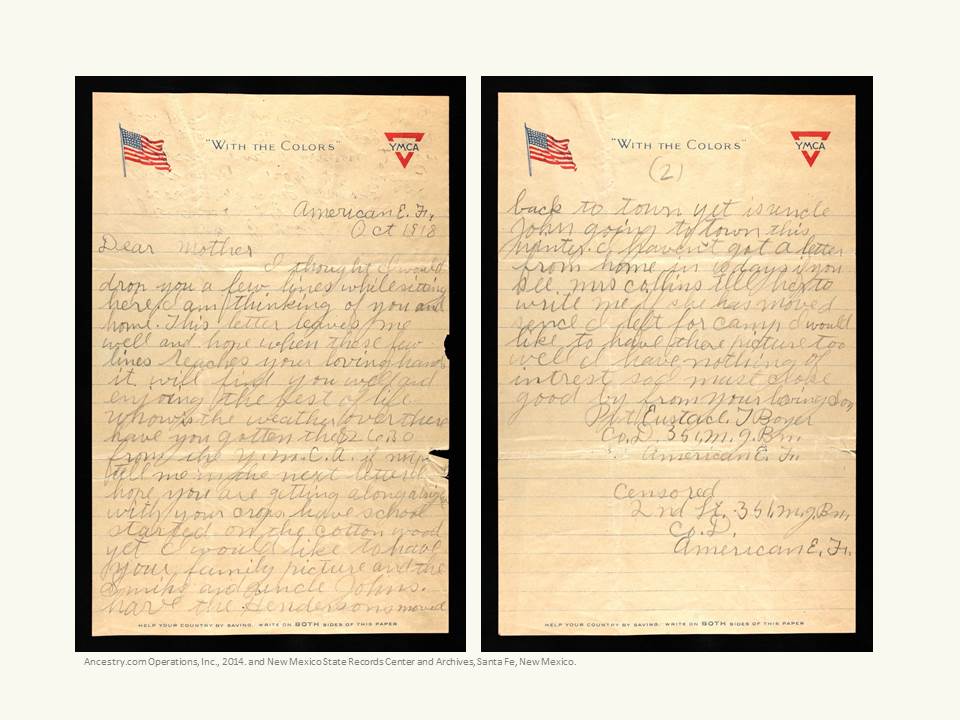 "WITH THE COLORS"
YMCA
American E. Fr.
Oct 1918
Dear Mother
I thought I would
drop you a few lines while sitting
here I am thinking of you and
home. This letter leaves me
well and hope when these few
lines reaches your loving hands
it will find you well and
enjoying the best of life
whow's the weather over there
have you gotten the
from the Y.M.C.A. if not
tell me in the next letter I
hope you are getting along alright
with your crops have school
started on the cotton wood
yet I would like to have
your family picture and the
Smiths and uncle Johns.
have the Hendersons moved
HELP YOUR COUNTRY BY SAVING. WRITE ON BOTH SIDES OF THIS PAPER
"WITH THE COLORS"
YMCA
(2)
back to town yet is uncle
John going to town this
winter. I haven't got a letter
from home in days if you
see mrs Collins tell her to
write me if she has moved
sence I left for camp I would
like to have there picture too
well I have nothing of
intrest so I must close
good by from your loving son
Pvt. Eustace T Boyer
Co. D. 351. M. G. Bn.
American E. Fr.
Censored
2nd Lt. 351. M. G. Bn.
Co. D.
American E. Fr.
HELP YOUR COUNTRY BY SAVING. WRITE ON BOTH SIDES OF THIS PAPER
Ancestry.com Operations, Inc., 2014. and New Mexico State Records Center and Archives, Santa Fe, New Mexico.